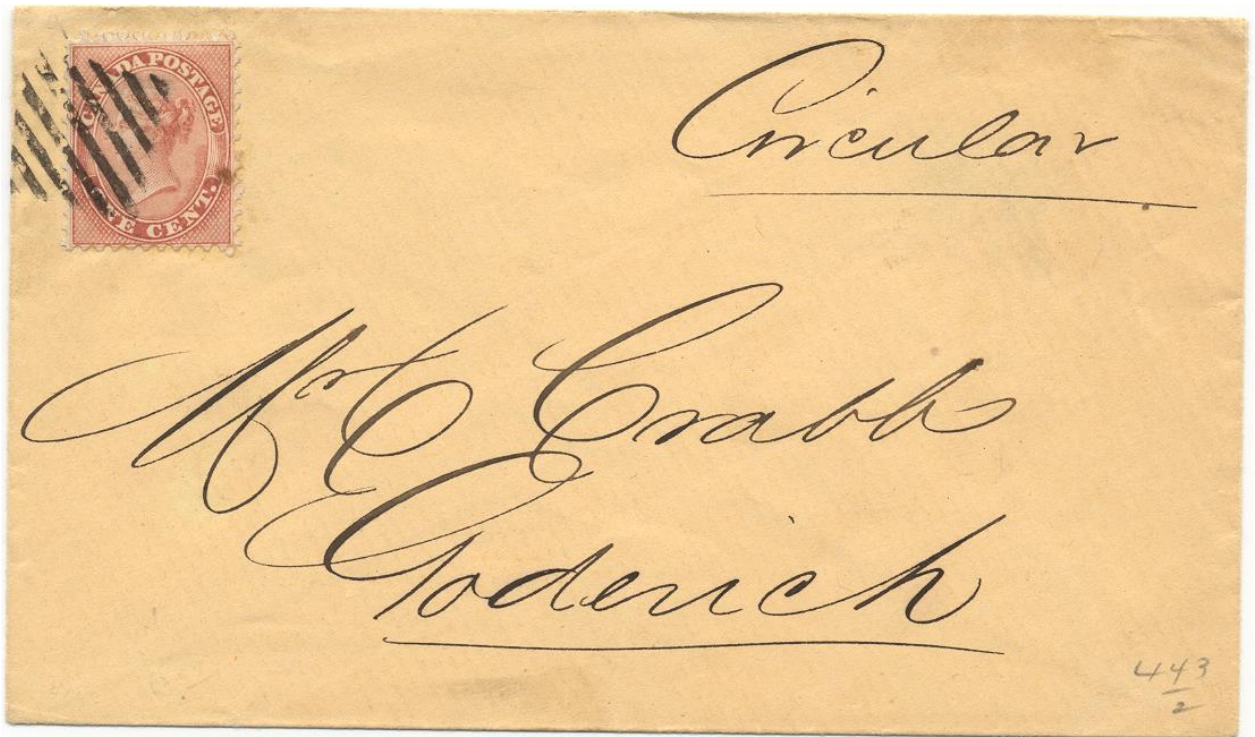 CANADA POSTAGE
ONE CENT.
Circular
Mr C Crabb
Goderich
443
2